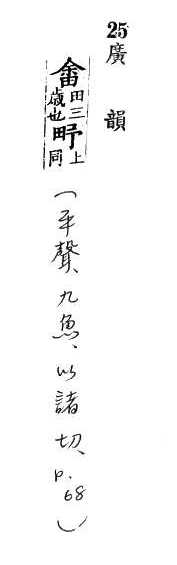 25廣韻
畬田三歲也 上同（平聲、九魚、以諸切、p.68）